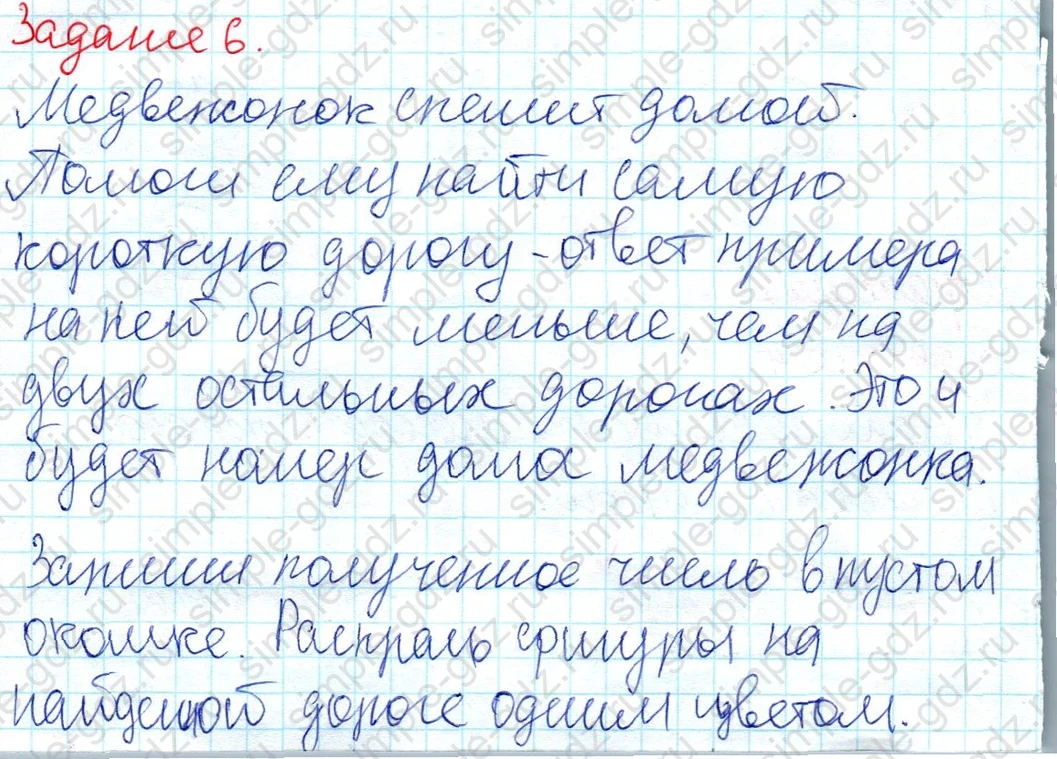 Задание 6.
Медвежонок спешит домой.
Помоги ему найти самую
короткую дорогу - ответ примера
на ней будет меньше, чем на
двух остальных дорогах. Это и
будет номер дома медвежонка.
Запиши полученное число в пустом
окошке. Раскрась фигуры на
найденной дороге одним цветом.
simple-gdz.ru